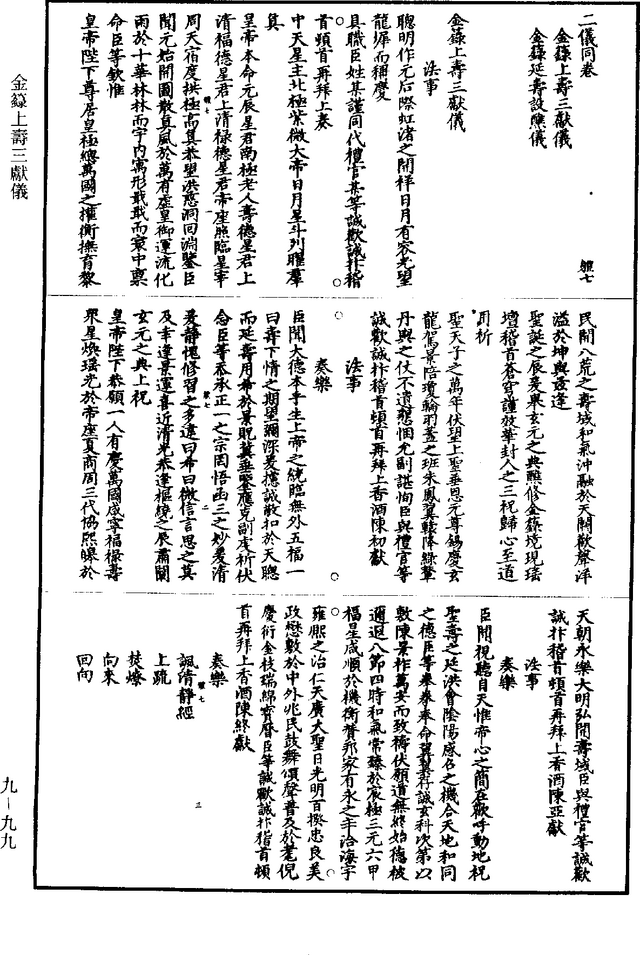 二儀同卷
金籙上壽三獻儀
金籙延壽設醮儀
金籙上壽三獻儀
法事
聰明作元后際虹渚之開祥日月有容光望
龍墀而稱慶
具職臣姓某謹同代禮官某等誠歡誠抃稽
首頓首再拜上奏
中天星主北極紫微大帝日月星斗列曜羣
真
皇帝本命元辰星君南極老人壽德星君上
清福德星君上清祿德星君帝座照臨星宰
周天宿度拱極高真恭望洪慈洞回淵鑒臣
聞元始開圖散真風於萬有虛皇御運流化
雨於十華林林而宇內寓形戢戢而寰中稟
命臣等欽惟
皇帝陛下尊居皇極總萬國之權衡撫育黎
民開八荒之壽域和氣沖融於天闕歡聲洋
溢於坤輿茲逢
聖誕之辰爰舉玄元之典醮修金籙境現瑤
壇稽首蒼穹謹效華封人之三祝歸心至道
用祈
聖天子之萬年伏望上聖垂恩元尊錫慶玄
龍駕景陪瓊輪羽蓋之班朱鳳翼轅降綠輦
丹輿之仗不遺懇悃允副諶恂臣與禮官等
誠歡誠抃稽首頓首再拜上香酒陳初獻
法事
奏樂
臣聞大德本乎生上帝之統臨無外五福一
曰壽下情之期望彌深爰攄誠敬扣於天聰
而延壽用希於景貺冀垂鑒應克副虔祈伏
念臣等忝承正一之宗罔悟函三之妙愛清
愛靜愧修習之多違曰希曰微信言思之莫
及幸逢景運喜近清光恭逢樞繞之辰肅闡
玄元之典上祝
皇帝陛下恭願一人有慶萬國咸寧福祿壽
眾星煥瑤光於帝座夏商周三代協熙皞於
天朝永樂大明弘開壽域臣與禮官等誠歡
誠抃稽首頓首再拜上香酒陳亞獻
法事
奏樂
臣聞視聽自天惟帝心之簡在歡呼動地祝
聖壽之延洪會陰陽感召之機合天地和同
之德臣等拳拳奉命翼翼存誠玄科次第以
敷陳景祚萬安而致禱伏願道無終始德被
遐邇八節四時和氣常臻於宸極三元六甲
福星咸順於機衡贊邦家有永之年洽海宇
雍熙之治仁天廣大聖日光明百揆忠良美
政懋敷於中外兆民鼓舞頌聲普及於耄倪
慶衍金枝瑞綿寶曆臣等誠歡誠抃稽首頓
首再拜上香酒陳終獻
奏樂
諷清靜經
上疏
焚燎
向來
回向
金籙上壽三獻儀
九—九九